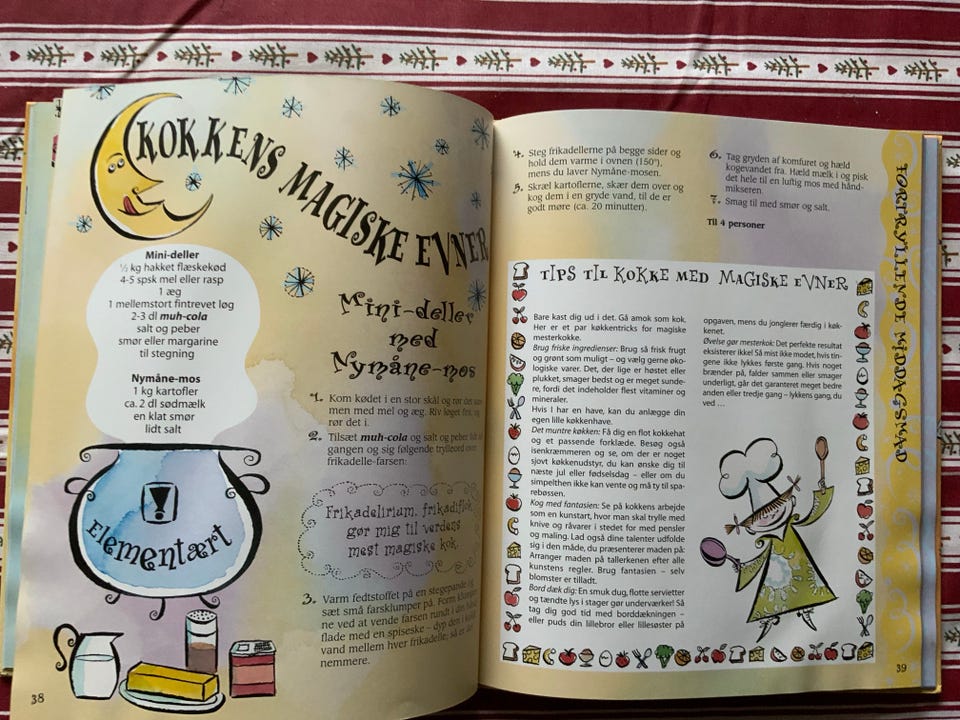 KOKKENS MAGISKE EVNER
Mini-deller
½ kg hakket flæskekød
4-5 spsk mel eller rasp
1 æg
1 mellemstort fintrevet løg
2-3 dl muh-cola
salt og peber
smør eller margarine
til stegning
Nymåne-mos
1 kg kartofler
ca. 2 dl sødmælk
en klat smør
lidt salt
Elementært
Mini-deller
med
Nymåne-mos
1. Kom kødet i en stor skål og rør det
men med mel og æg. Riv løget fint, og
rør det i.
2. Tilsæt muh-cola og salt og peber lidt
gangen og sig følgende trylleord over
frikadelle-farsen:
Frikadelirium, frikadiflok,
gør mig til verdens
mest magiske kok.
3. Varm fedtstoffet på en stegepande og
sæt små farsklumper på. Form
ne ved at vende farsen rundt i den
flade med en spiseske – dyp den i
vand mellem hver frikadelle, så er det
nemmere.
38
4. Steg frikadellerne på begge sider og
hold dem varme i ovnen (150°),
mens du laver Nymåne-mosen.
5. Skræl kartoflerne, skær dem over og
kog dem i en gryde vand, til de er
godt møre (ca. 20 minutter).
6. Tag gryden af komfuret og hæld
kogevandet fra. Hæld mælk i og pisk
det hele til en luftig mos med hånd-
mikseren.
7. Smag til med smør og salt.
Til 4 personer
TIPS TIL KOKKE MED MAGISKE EVNER
Bare kast dig ud i det. Gå amok som kok.
Her er et par køkkentricks for magiske
mesterkokke.
Brug friske ingredienser: Brug så frisk frugt
og grønt som muligt – og vælg gerne øko-
logiske varer. Det, der lige er høstet eller
plukket, smager bedst og er meget sunde-
re, fordi det indeholder flest vitaminer og
mineraler.
Hvis I har en have, kan du anlægge din
egen lille køkkenhave.
Det muntre køkken: Få dig en flot kokkehat
og et passende forklæde. Besøg også
isenkræmmeren og se, om der er noget
sjovt køkkenudstyr, du kan ønske dig til
næste jul eller fødselsdag – eller om du
simpelthen ikke kan vente og må ty til spa-
rebøssen.
Kog med fantasien: Se på kokkens arbejde
som en kunstart, hvor man skal trylle med
knive og råvarer i stedet for med pensler
og maling. Lad også dine talenter udfolde
sig i den måde, du præsenterer maden på:
Arranger maden på tallerkenen efter alle
kunstens regler. Brug fantasien – selv
blomster er tilladt.
Bord dæk dig: En smuk dug, flotte servietter
og tændte lys i stager gør underværker! Så
tag dig god tid med borddækningen –
eller puds din lillebror eller lillesøster på
opgaven, mens du jonglerer færdig i køk-
kenet.
Øvelse gør mesterkok: Det perfekte resultat
eksisterer ikke! Så mist ikke modet, hvis tin-
gene ikke lykkes første gang. Hvis noget
brænder på, falder sammen eller smager
underligt, går det garanteret meget bedre
anden eller tredje gang – lykkens gang, du
ved …
FORTRYLLENDE MIDDAGSMAD
39